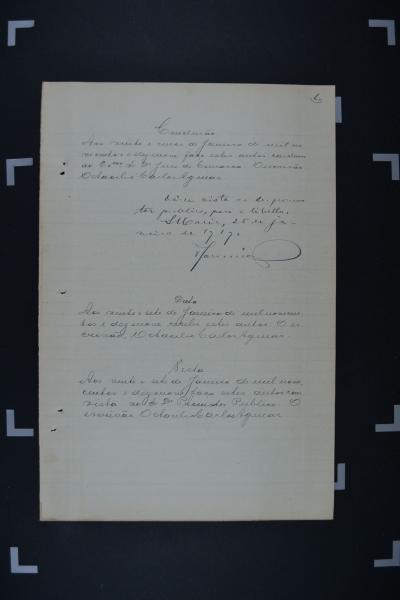 Conclusão
Aos vinte e cinco de Janeiro de mil no
vecentos e dezenove faço estes autos conclusos
ao Exmo Sr Dr Juiz de Comarca. O escrivão
Octacilio Carlos Aguiar
vista ao dr. promo
tor publico, para o libello.
S. Maria, 25 de ja
neiro de 1919.
Data
Aos vinte e sete de Janeiro de mil novecen
tos e dezenove recebi estes autos. O es
crivão, Octacilio Carlos Aguiar.
Vista
Aos vinte e sete de Janeiro de mil nove
centos e dezenove faço estes autos com
vista ao Dr Promotor Publico. O
escrivão Octacilio Carlos Aguiar